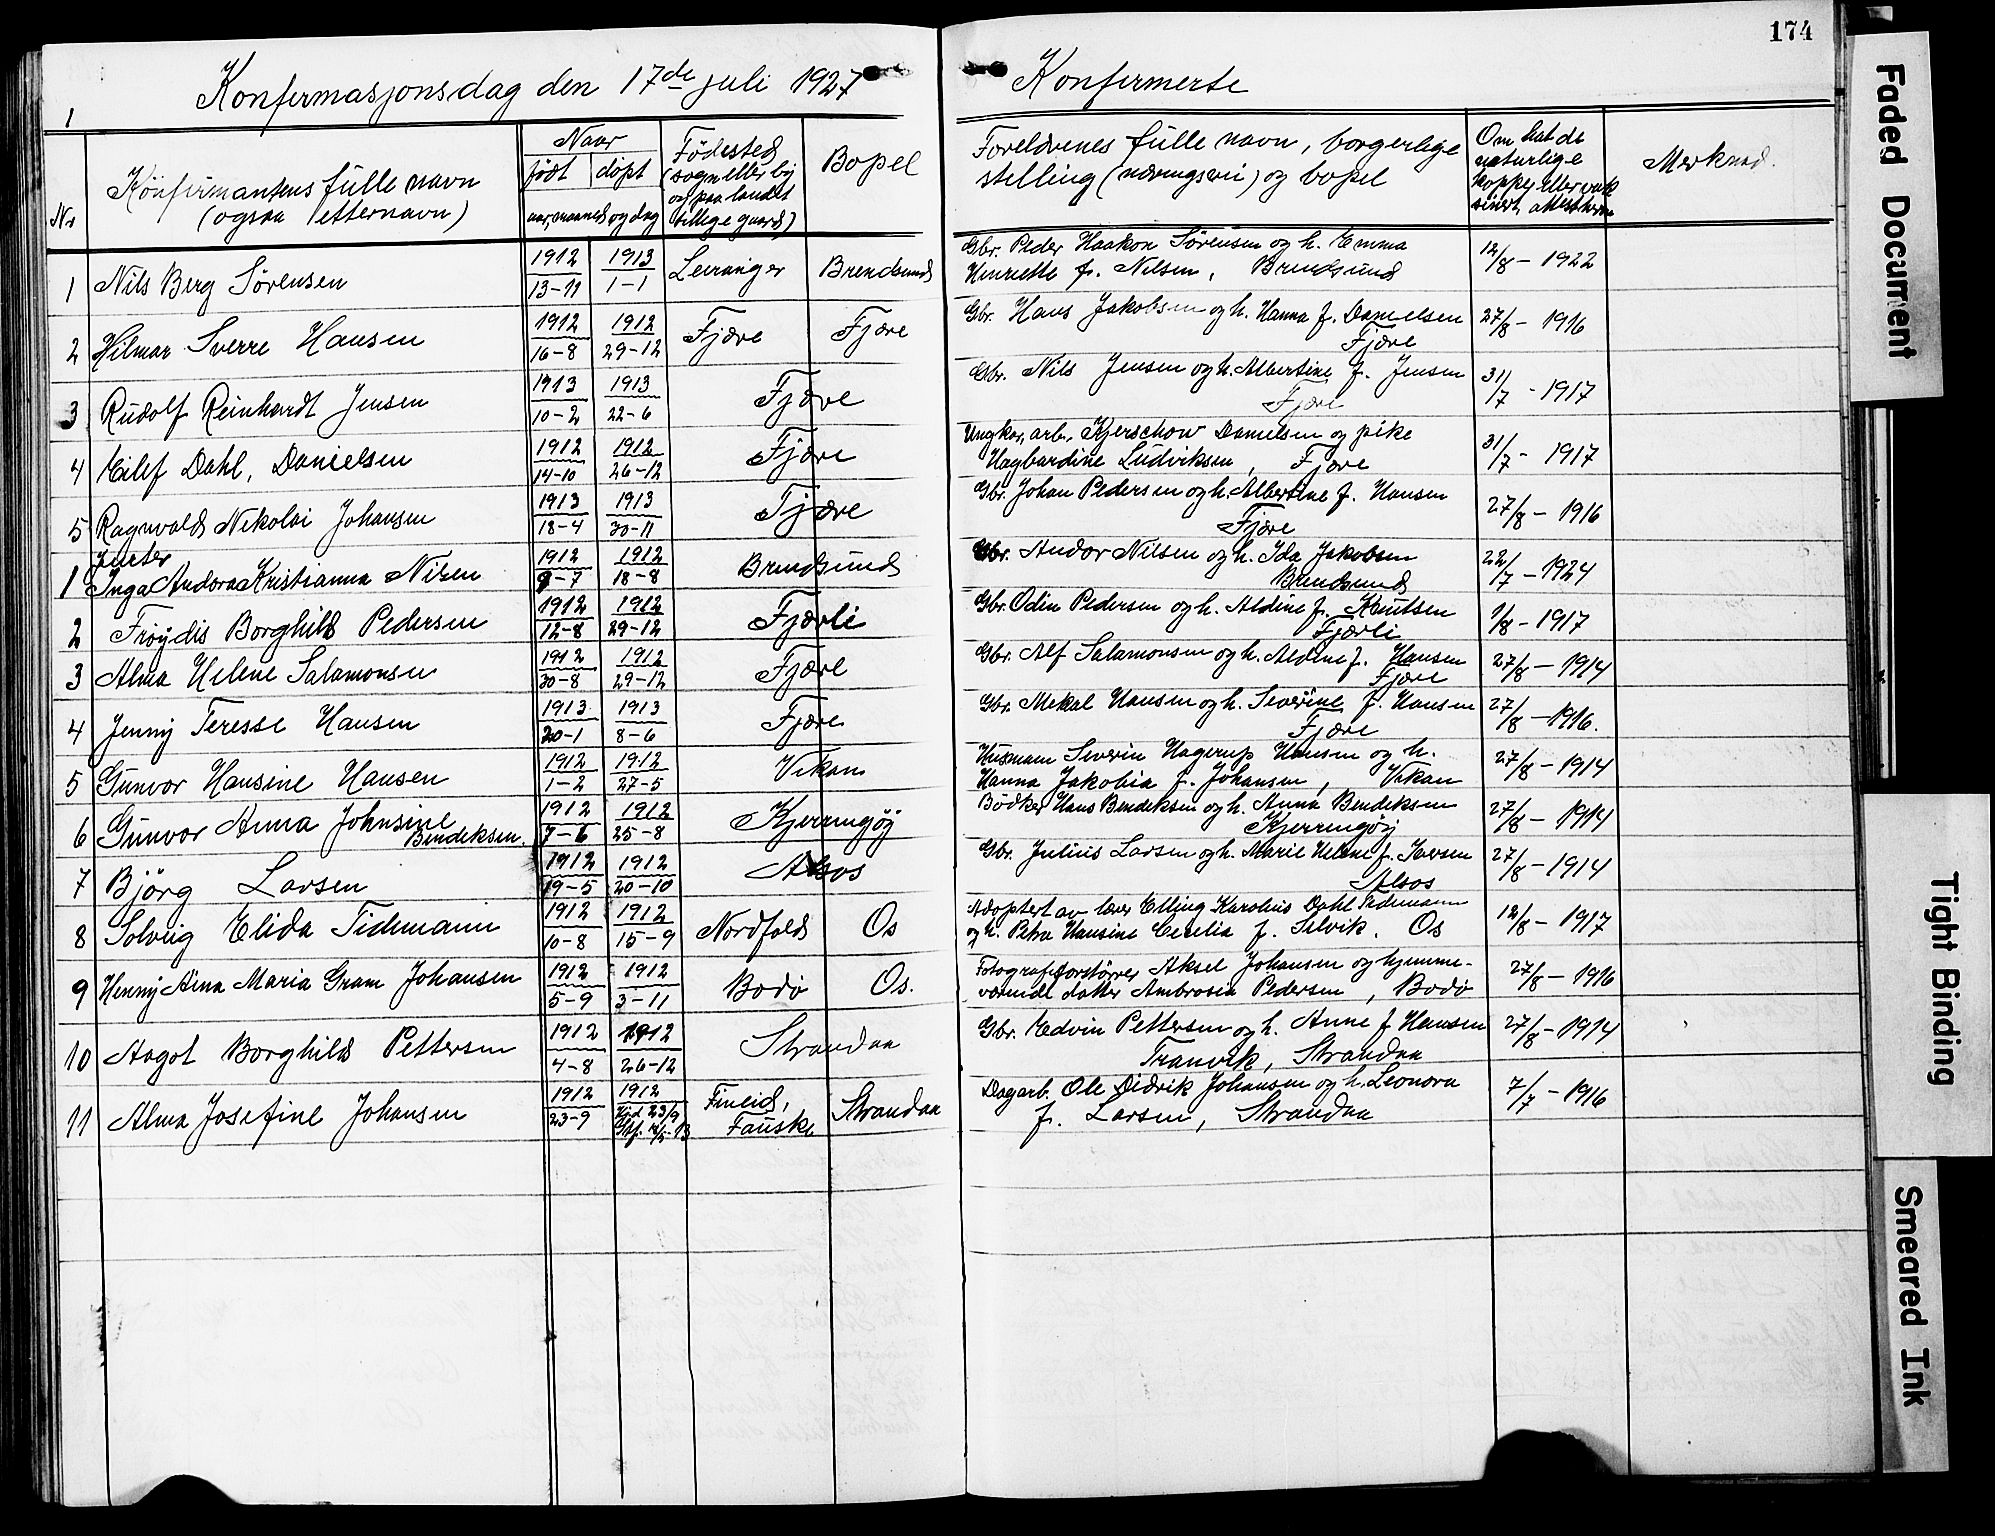 174
Konfirmasjonsdag den 17de juli 1927
Konfirmerte
1
Nr
Konfirmantens fulle navn
(ogsaa etternavn)
Naar
födt | döpt
aar, maaned og dag
Födested
(sogn eller by
og paa landet
tillige gaard)
Bopel
Foreldrenes fulle navn, borgerlige
stilling (næringsvei) og bopel
Om hat de
naturlige
kopper eller vak
sinert, attest herom
Merknad.
1 Nils Berg Sörensen 1912 13-11 1913 1-1 Leiranger Brendsund
Gbr. Peder Haakon Sörensen og h. Emma
Henriette f. Nilsen, Brendsund 12/8 - 1922
2 Hilmar Sverre Hansen 1912 16-8 1912 29-12 Fjære Fjære
Gbr. Hans Jakobsen og h. Hanna f. Danielsen
Fjære 27/8 - 1916
3 Rudolf Reinhardt Jensen 1913 10-2 1913 22-6 Fjære
Gbr. Nils Jensen og h. Albertine f. Jensen
Fjære 31/7 - 1917
4 Eilef Dahl, Danielsen 1912 14-10 1912 26-12 Fjære
Ungkar, arb. Kjerschow Danielsen og pike
Hagbardine Ludviksen, Fjære 31/7 - 1917
5 Ragnvald Nikolai Johansen 1913 18-4 1913 30-11 Fjære
Gbr. Johan Pedersen og h. Albertine f. Hansen
Fjære 27/8 - 1916
Jenter
1 Inga Andora Kristianna Nilsen 1912 9-7 1912 18-8 Brendsund
Gbr. Andor Nilsen og h. Ida Jakobsen
Brendsund 22/7 - 1924
2 Fröydis Borghild Pedersen 1912 12-8 1912 29-12 Fjærli
Gbr. Odin Pedersen og h. Aldine f. Knutsen
Fjærli 1/8 - 1917
3 Alma Helene Salamonsen 1912 30-8 1912 29-12 Fjære
Gbr. Alf Salamonsen og h. Aldine f. Hansen
Fjære 27/8 - 1914
4 Jenny Teresse Hansen 1913 20-1 1913 8-6 Fjære
Gbr. Mekal Hansen og h. Severine f. Hansen
Fjære 27/8 - 1916.
5 Gunvor Hansine Hansen 1912 1-2 1912 27-5 Vikan
Husmann Severin Hagerup Hansen og h.
Hanna Jakobia f. Johansen, Vikan 27/8 - 1914
6 Gunvor Anna Johnsine
Bendeksen. 1912 7-6 1912 25-8 Kjerringöy
Bödker Hans Bendeksen og h. Anna Bendeksen
Kjerringöy 27/8 - 1914
7 Björg Larsen 1912 19-5 1912 20-10 Alsos
Gbr. Julius Larsen og h. Marie Helene f. Iversen
Alsos 27/8 - 1914
8 Solveig Elida Tidemann 1912 10-8 1912 15-9 Nordfold Os
Adoptert av lærer Elling Karolius Dahl Tidemann
og h. Petra Hansine Cecilia f. Selvik. Os 12/8 - 1917
9 Henny Aina Maria Gram Johansen 1912 5-9 1912 3-11 Bodö Os.
Fotografiforstörrer Aksel Johansen og hjemme-
værende datter Ambrosia Pedersen, Bodö 27/8 - 1916
10 Aagot Borghild Pettersen 1912 4-8 1912 26-12 Strandaa
Gbr. Edvin Pettersen og h. Anne f. Hansen
Tranvik, Strandaa 27/8 - 1914
11 Alma Josefine Johansen 1912 23-9 1912 Hjd 23/9
Stf. 12/5-13 Fineid,
Fauske Strandaa
Dagarb. Ole Didrik Johansen og h. Leonora
f. Larsen, Strandaa 7/7 - 1916
Faded Document
Tight Binding
Smeared Ink